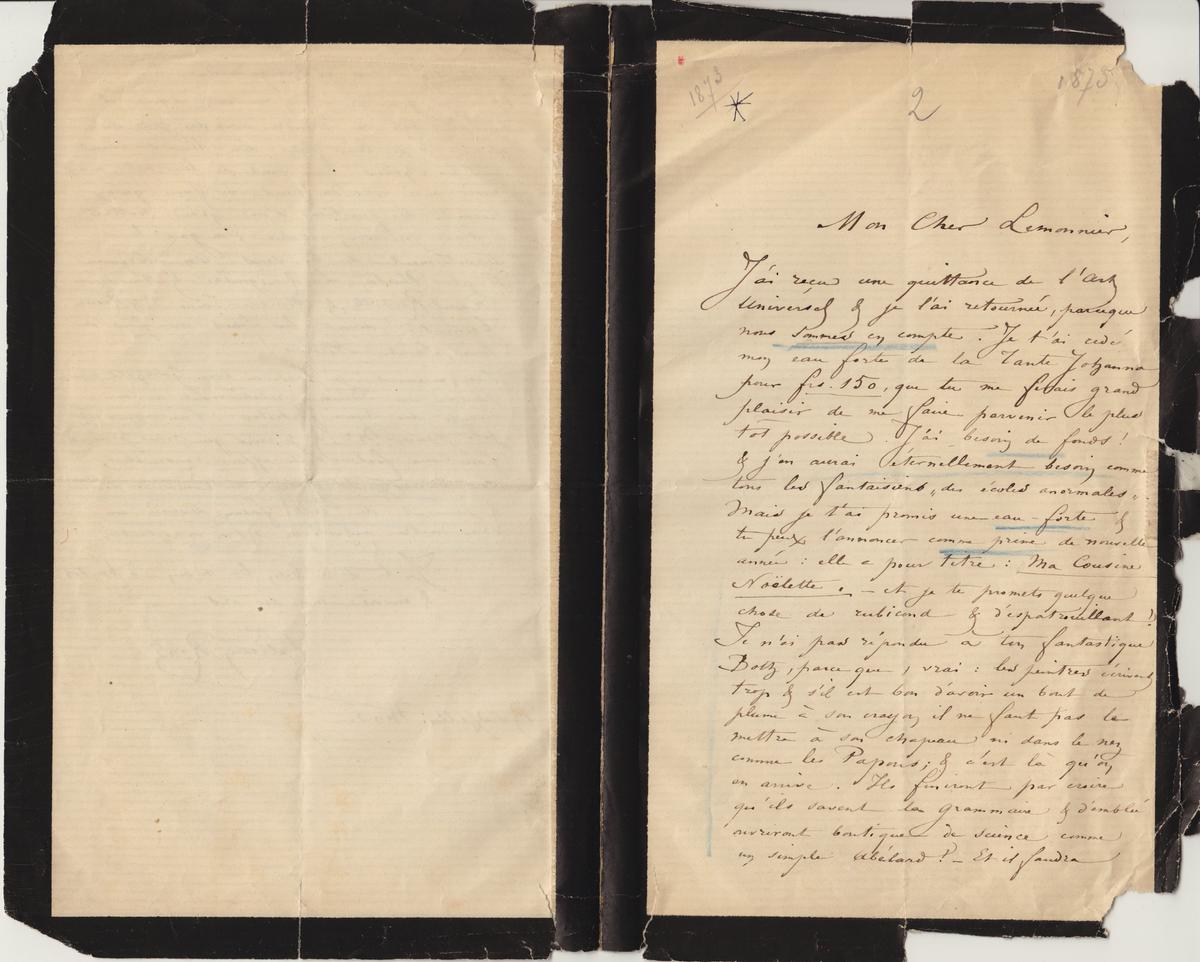 1873
2
1875
Mon Cher Lemonnier,
J'ai reçu une quittance de l'Art
Universel & je l'ai retournée, parceque
nous sommes en compte. Je t'ai cédé
mon eau forte de la Tante Johanna
pour frs. 150, que tu me ferais grand
plaisir de me faire parvenir le plus
tôt possible. J'ai besoin de fonds!
& j'en aurai éternellement besoin comme
tous les fantaisistes „des écoles anormales„.
Mais je t'ai promis une eau-forte &
tu peux l'annoncer comme prime de nouvelle
année: elle a pour titre: Ma Cousine
Noëlette. — et je te promets quelque
chose de rubicond & d'espatrouillant!
Je n'ai pas répondu à ton fantastique
Botz, parce que, vrai: les peintres écrivent
trop & s'il est bon d'avoir un bout de
plume à son crayon il ne faut pas le
mettre à son chapeau ni dans le nez
comme les Papous; & c'est là qu'on
en arrive. Ils finiront par croire
qu'ils savent la Grammaire & d'emblée
ouvriront boutique de science comme
un simple Abélard! — Et il faudra